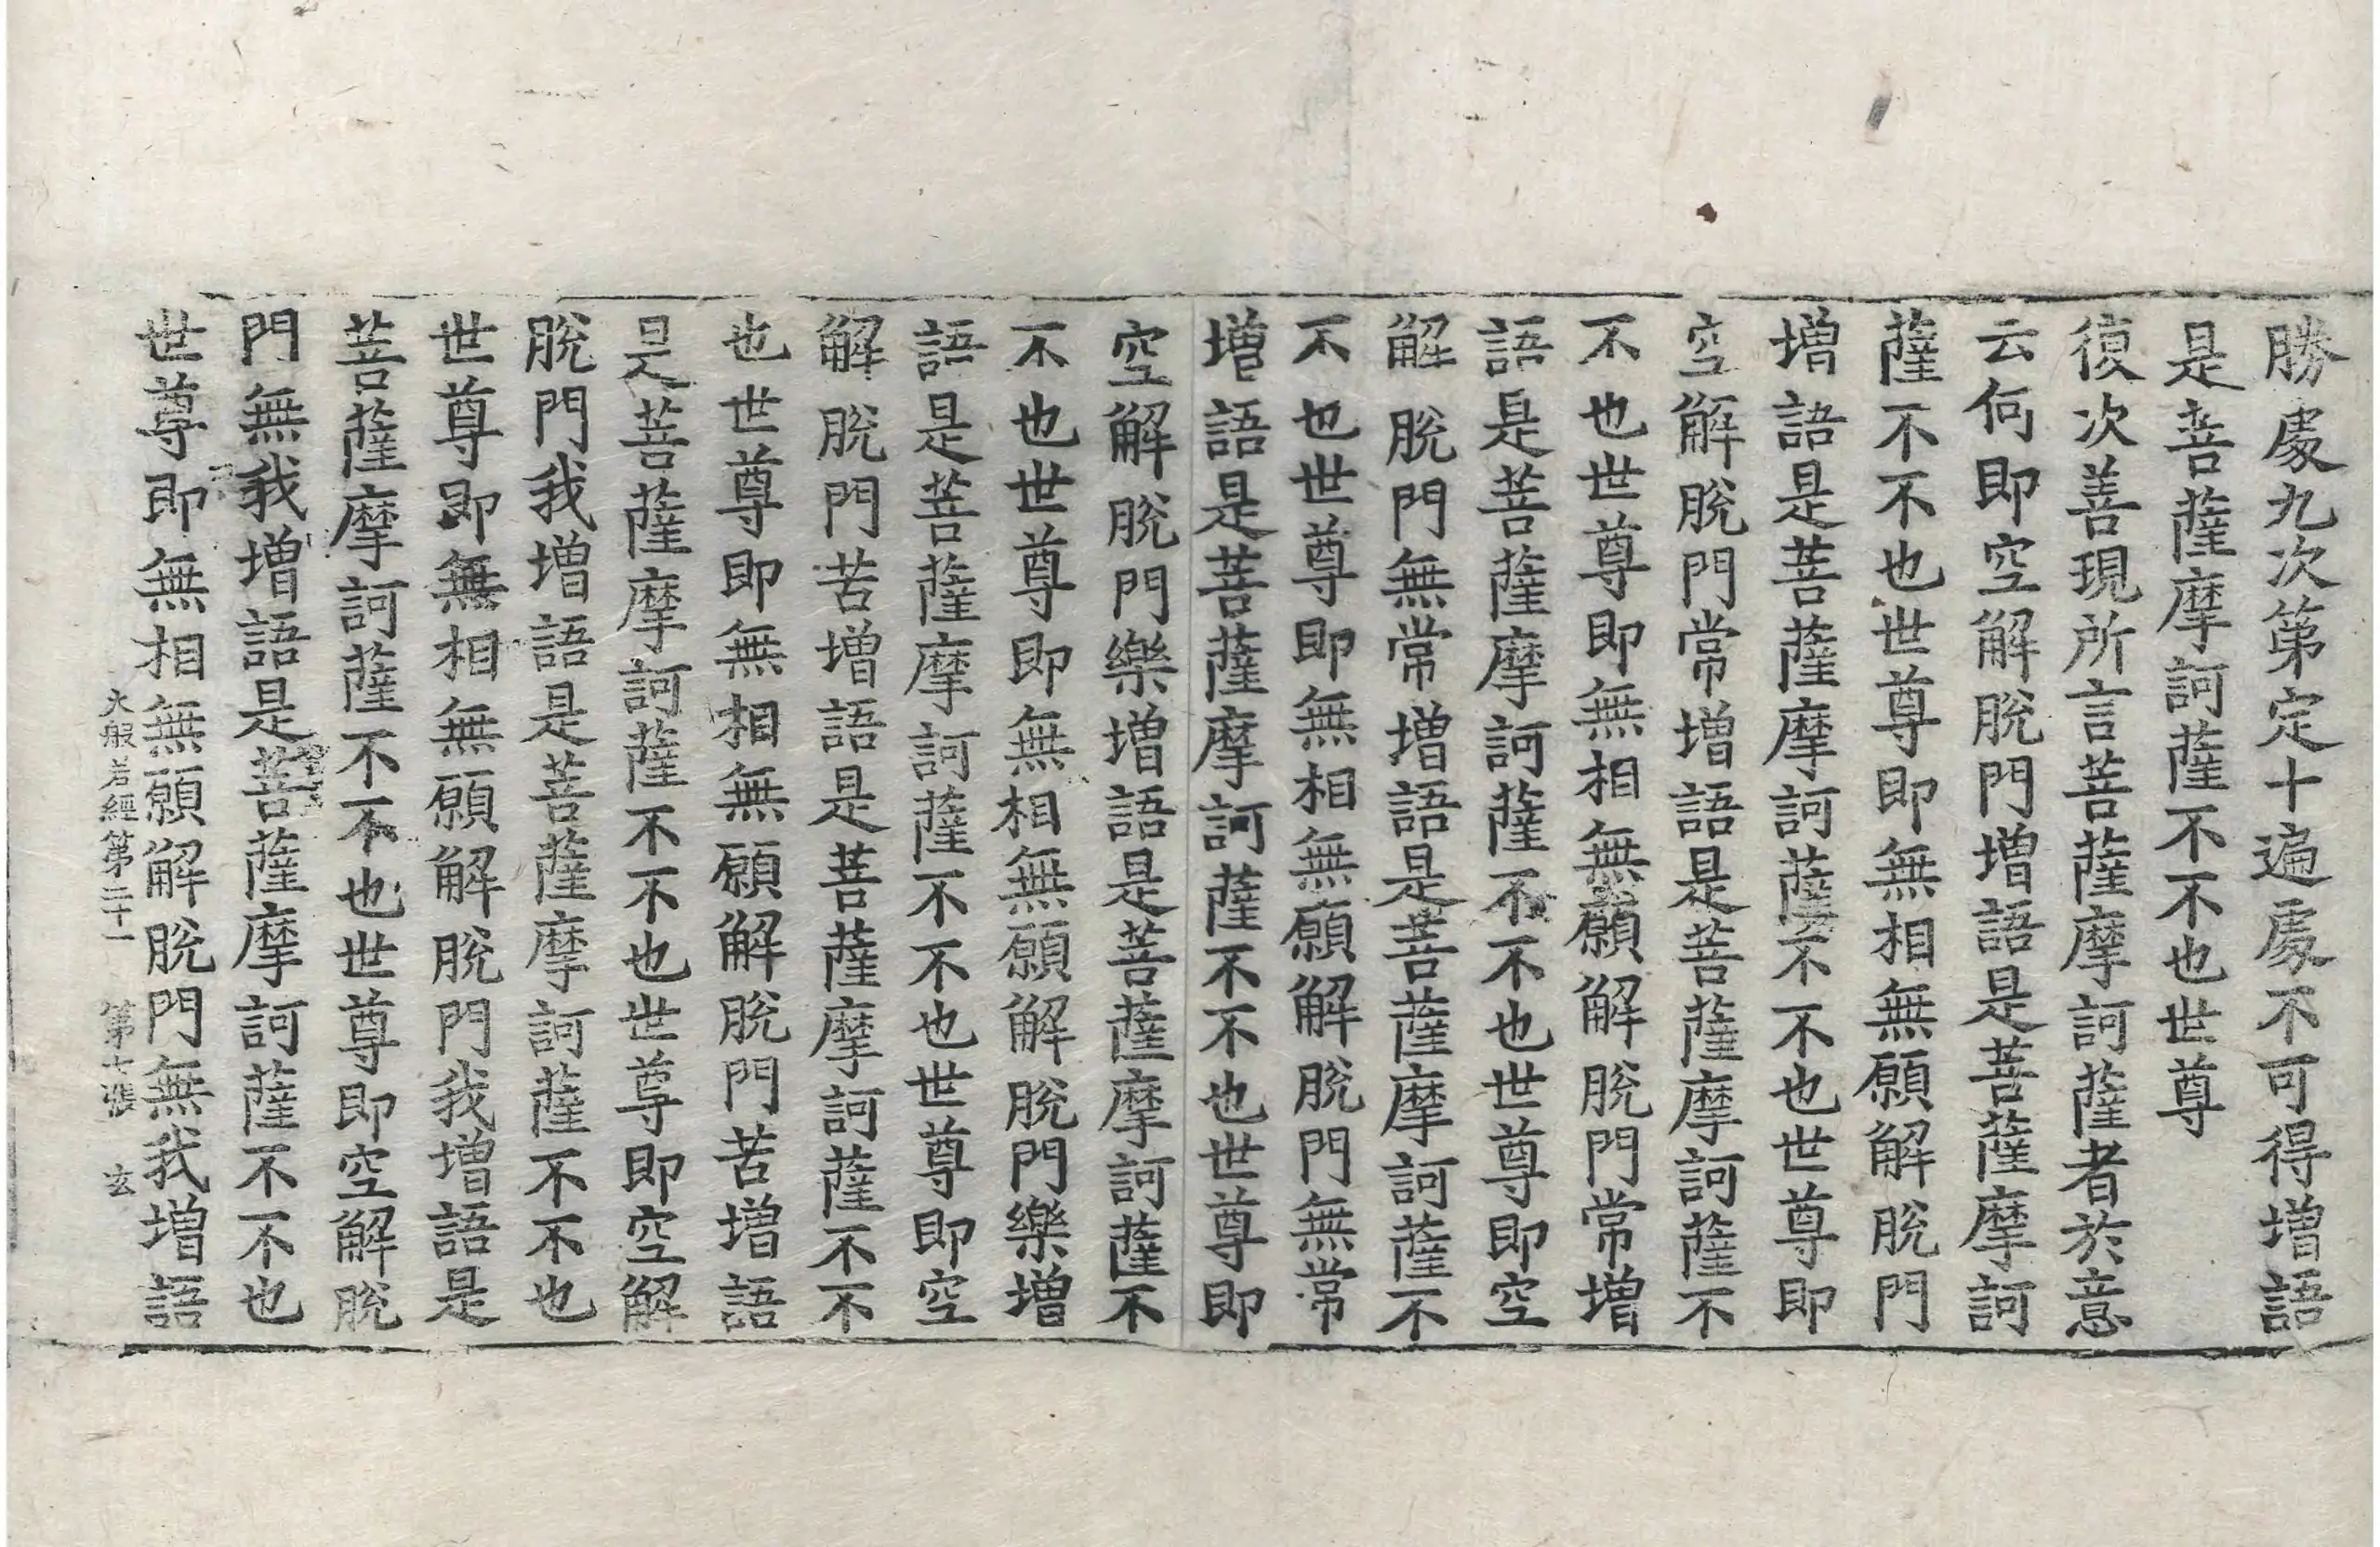 勝處九次第定十遍處不可得增語
是菩薩摩訶薩不不也世尊
復次善現所言菩薩摩訶薩者於意
云何即空解脫門增語是菩薩摩訶
薩不不也世尊即無相無願解脫門
增語是菩薩摩訶薩不不也世尊即
空解脫門常增語是菩薩摩訶薩不
不也世尊即無相無願解脫門常增
語是菩薩摩訶薩不不也世尊即空
解脫門無常增語是菩薩摩訶薩不
不也世尊即無相無願解脫門無常
增語是菩薩摩訶薩不不也世尊即
空解脫門樂增語是菩薩摩訶薩不
不也世尊即無相無願解脫門樂增
語是菩薩摩訶薩不不也世尊即空
解脫門苦增語是菩薩摩訶薩不不
也世尊即無相無願解脫門苦增語
是菩薩摩訶薩不不也世尊即空解
脫門我增語是菩薩摩訶薩不不也
世尊即無相無願解脫門我增語是
菩薩摩訶薩不不也世尊即空解脫
門無我增語是菩薩摩訶薩不不也
世尊即無相無願解脫門無我增語
大般若經第二十一 第七張 玄